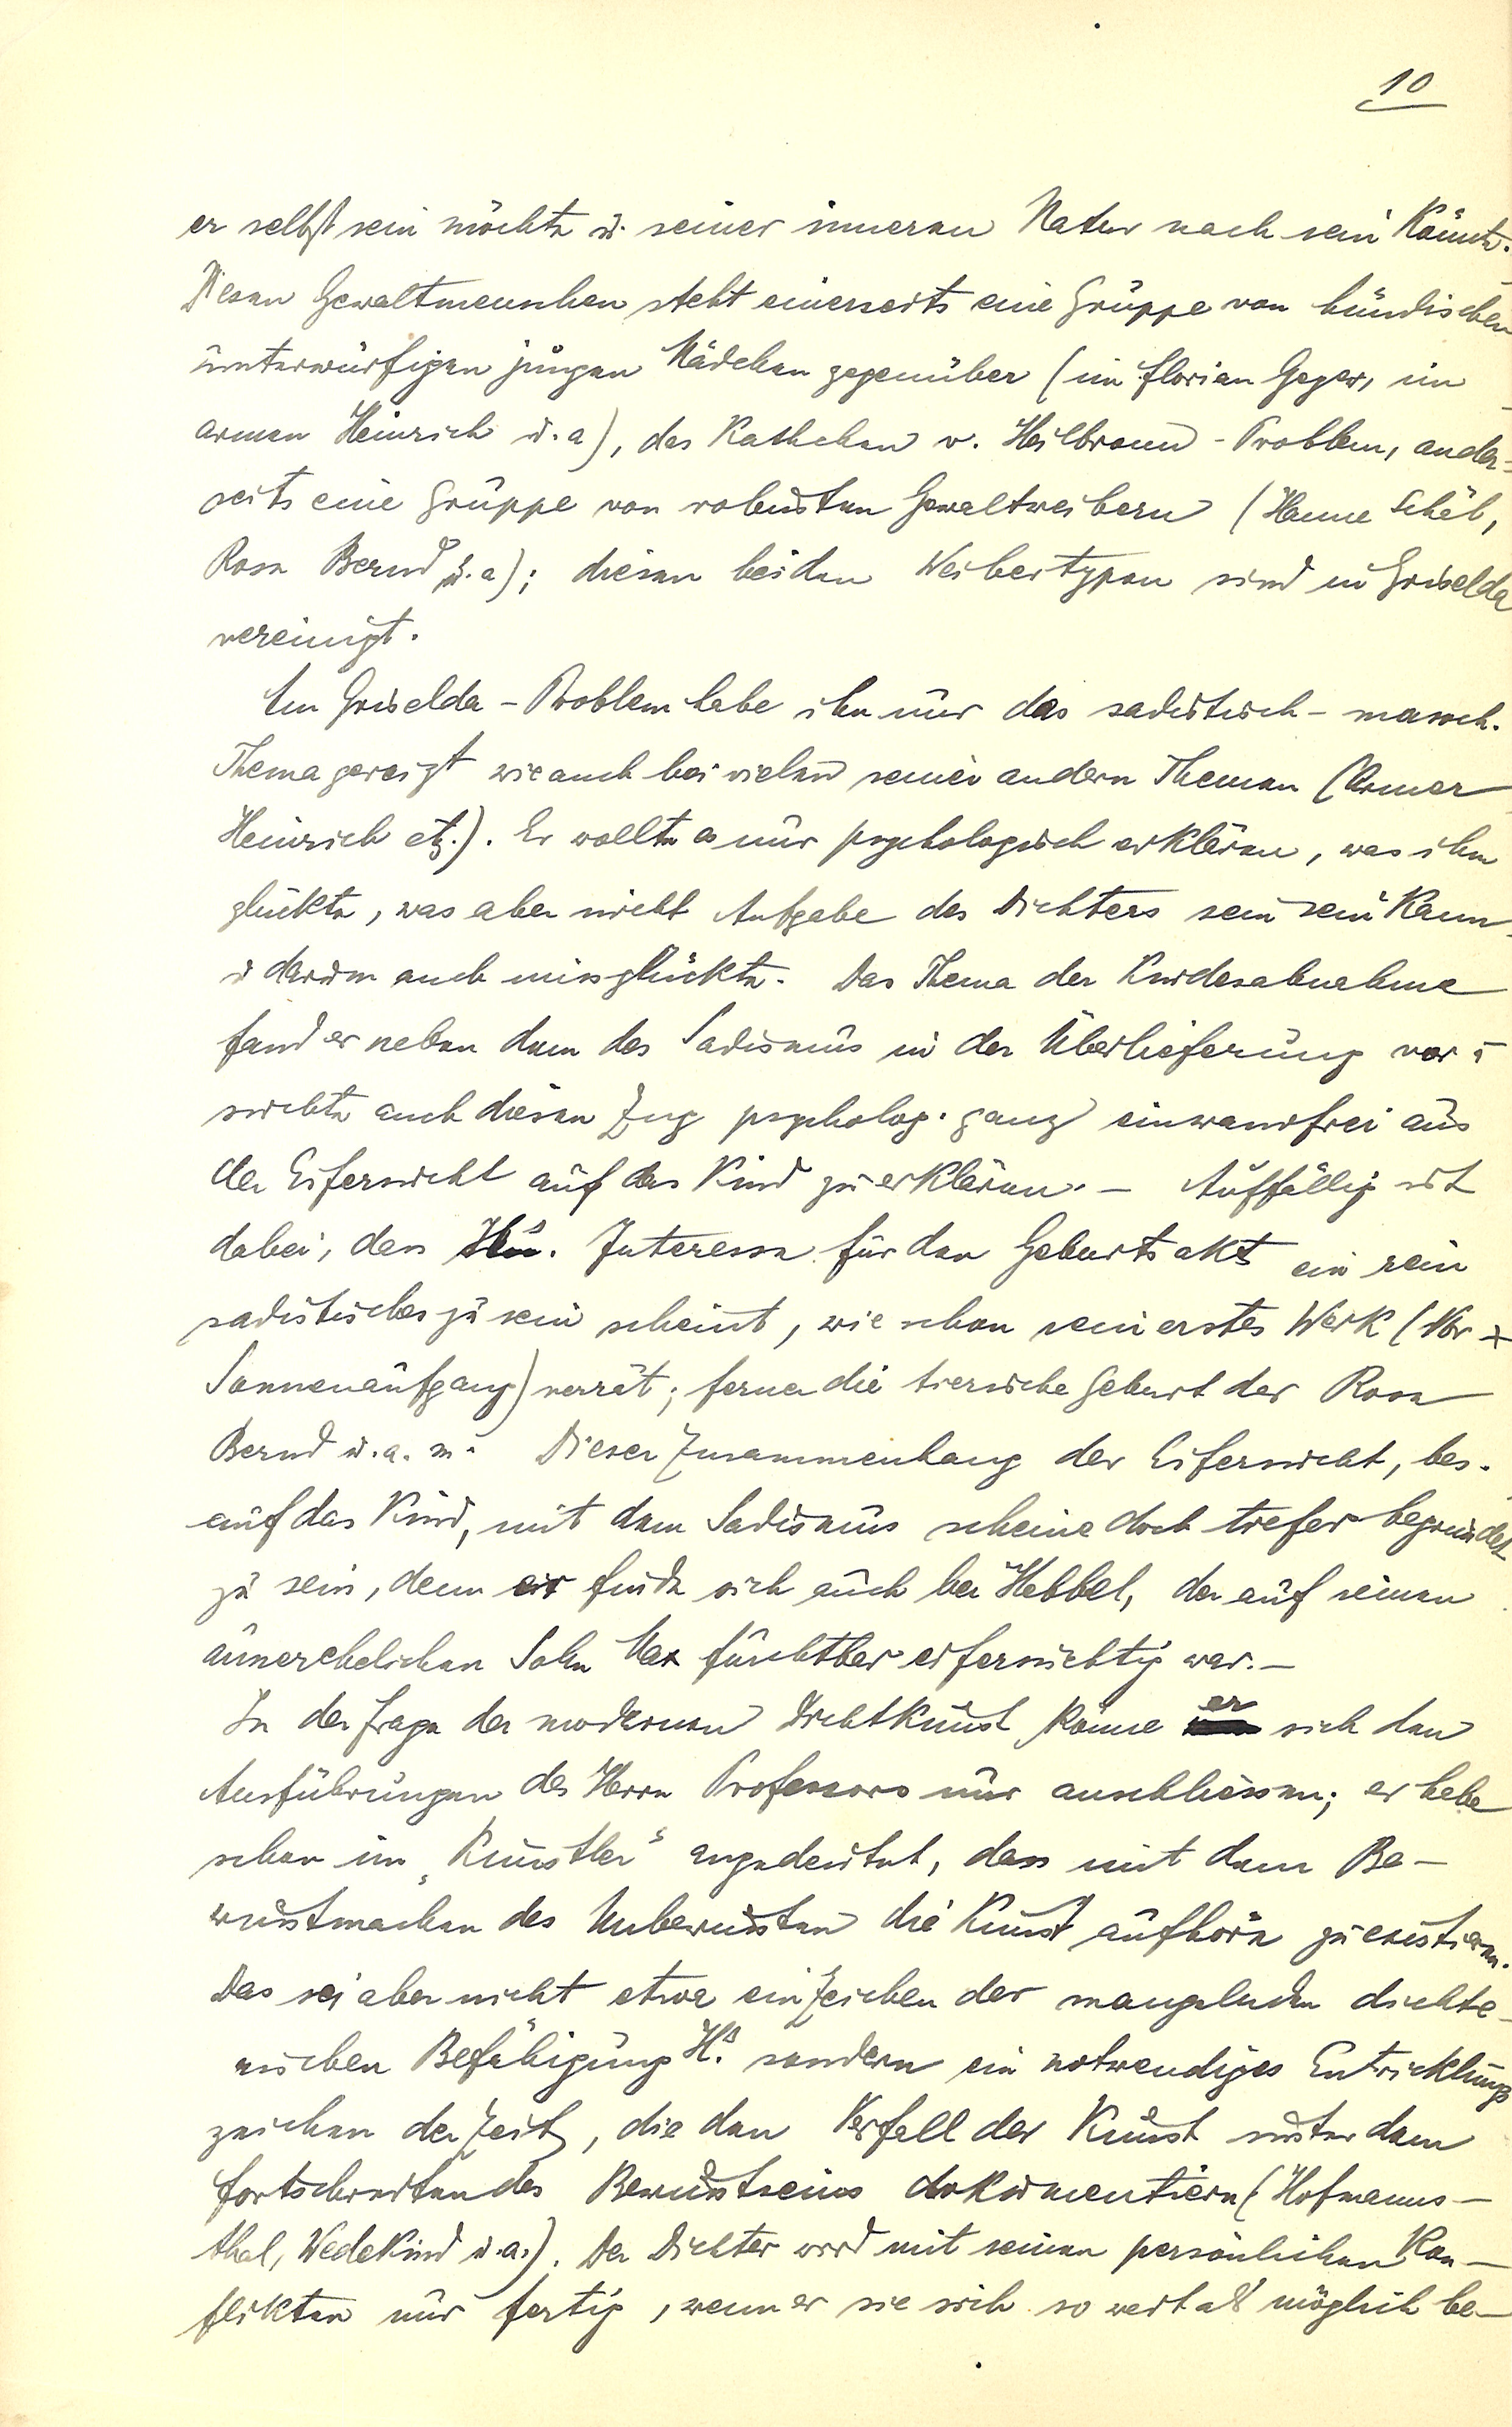 10
er selbst sein möchte u. seiner inneren Natur nach sein könnte.
Diesen Gewaltmenschen steht einerseits eine Gruppe von hündischen
unterwürfigen jungen Mädchen gegenüber (im Florian Geyer, im
armen Heinrich u. a), das Kathchen v. Heilbronn-Problem, ander-
seits eine Gruppe von robusten Gewaltweibern (Hanne Schäl,
Rose Bernd u. a); diesen beiden Weibertypen sind in Griselda
vereinigt.
Am Griselda-Problem habe ihn nur das sadistisch-masoch.
Thema gereizt wie auch bei vielen seiner andern Themen (Armer
Heinrich etz.). Er wollte es nur psychologisch erklären, was ihm
glückte, was aber nicht Aufgabe des Dichters sein sein kann
u darum auch missglückte. Das Thema der Kindesabnahme
fand er neben dem des Sadismus in der Überlieferung vor u
suchte auch diesen Zug psycholog. ganz einwandfrei aus
der Eifersucht auf das Kind zu erklären. – Auffällig ist
dabei, dass H's. Interesse für den Geburtsakt ein rein
sadistisches zu sein scheint, wie schon sein erstes Werk (Vor
Sonnenaufgang) verrät; ferner die tierische Geburt der Rose
Bernd u. a. m. Dieser Zusammenhang der Eifersucht, bes.
auf das Kind, mit dem Sadismus scheine doch tiefer begründet
zu sein, denn er finde sich auch bei Hebbel, der auf seinen
ausserehelichen Sohn Max furchtbar eifersüchtig war. –
In der Frage der modernen Dichtkunst könne er sich den
Ausführungen des Herrn Professors nur anschliessen; er habe
schon im „Künstler" angedeutet, dass mit dem Be-
wusstmachen des Unbewussten die Kunst aufhöre zu existieren.
Das sei aber nicht etwa ein Zeichen der mangelnden dichte-
rischen Befähigung H.s sondern ein notwendiges Entwicklungs
zeichen der Zeit, die den Verfall der Kunst unter dem
fortschreitendes Bewusstseins dokumentieren (Hofmanns-
thal, Wedekind u. a.). Der Dichter wird mit seinen persönlichen Kon-
flikten nur fertig, wenn er sie sich so weit als möglich be-